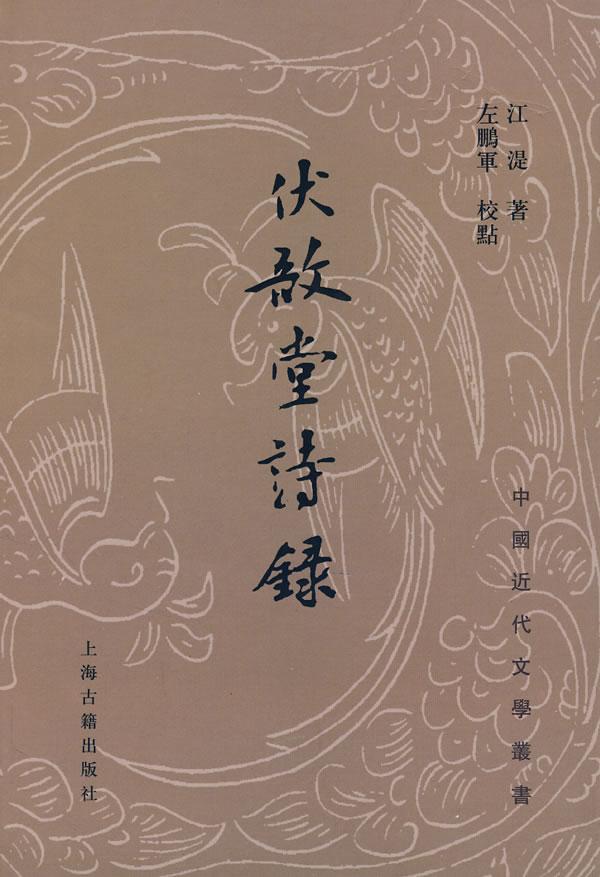 江湜 著
左鵬軍 校點
伏敔堂詩録
中國近代文學叢書
上海古籍出版社